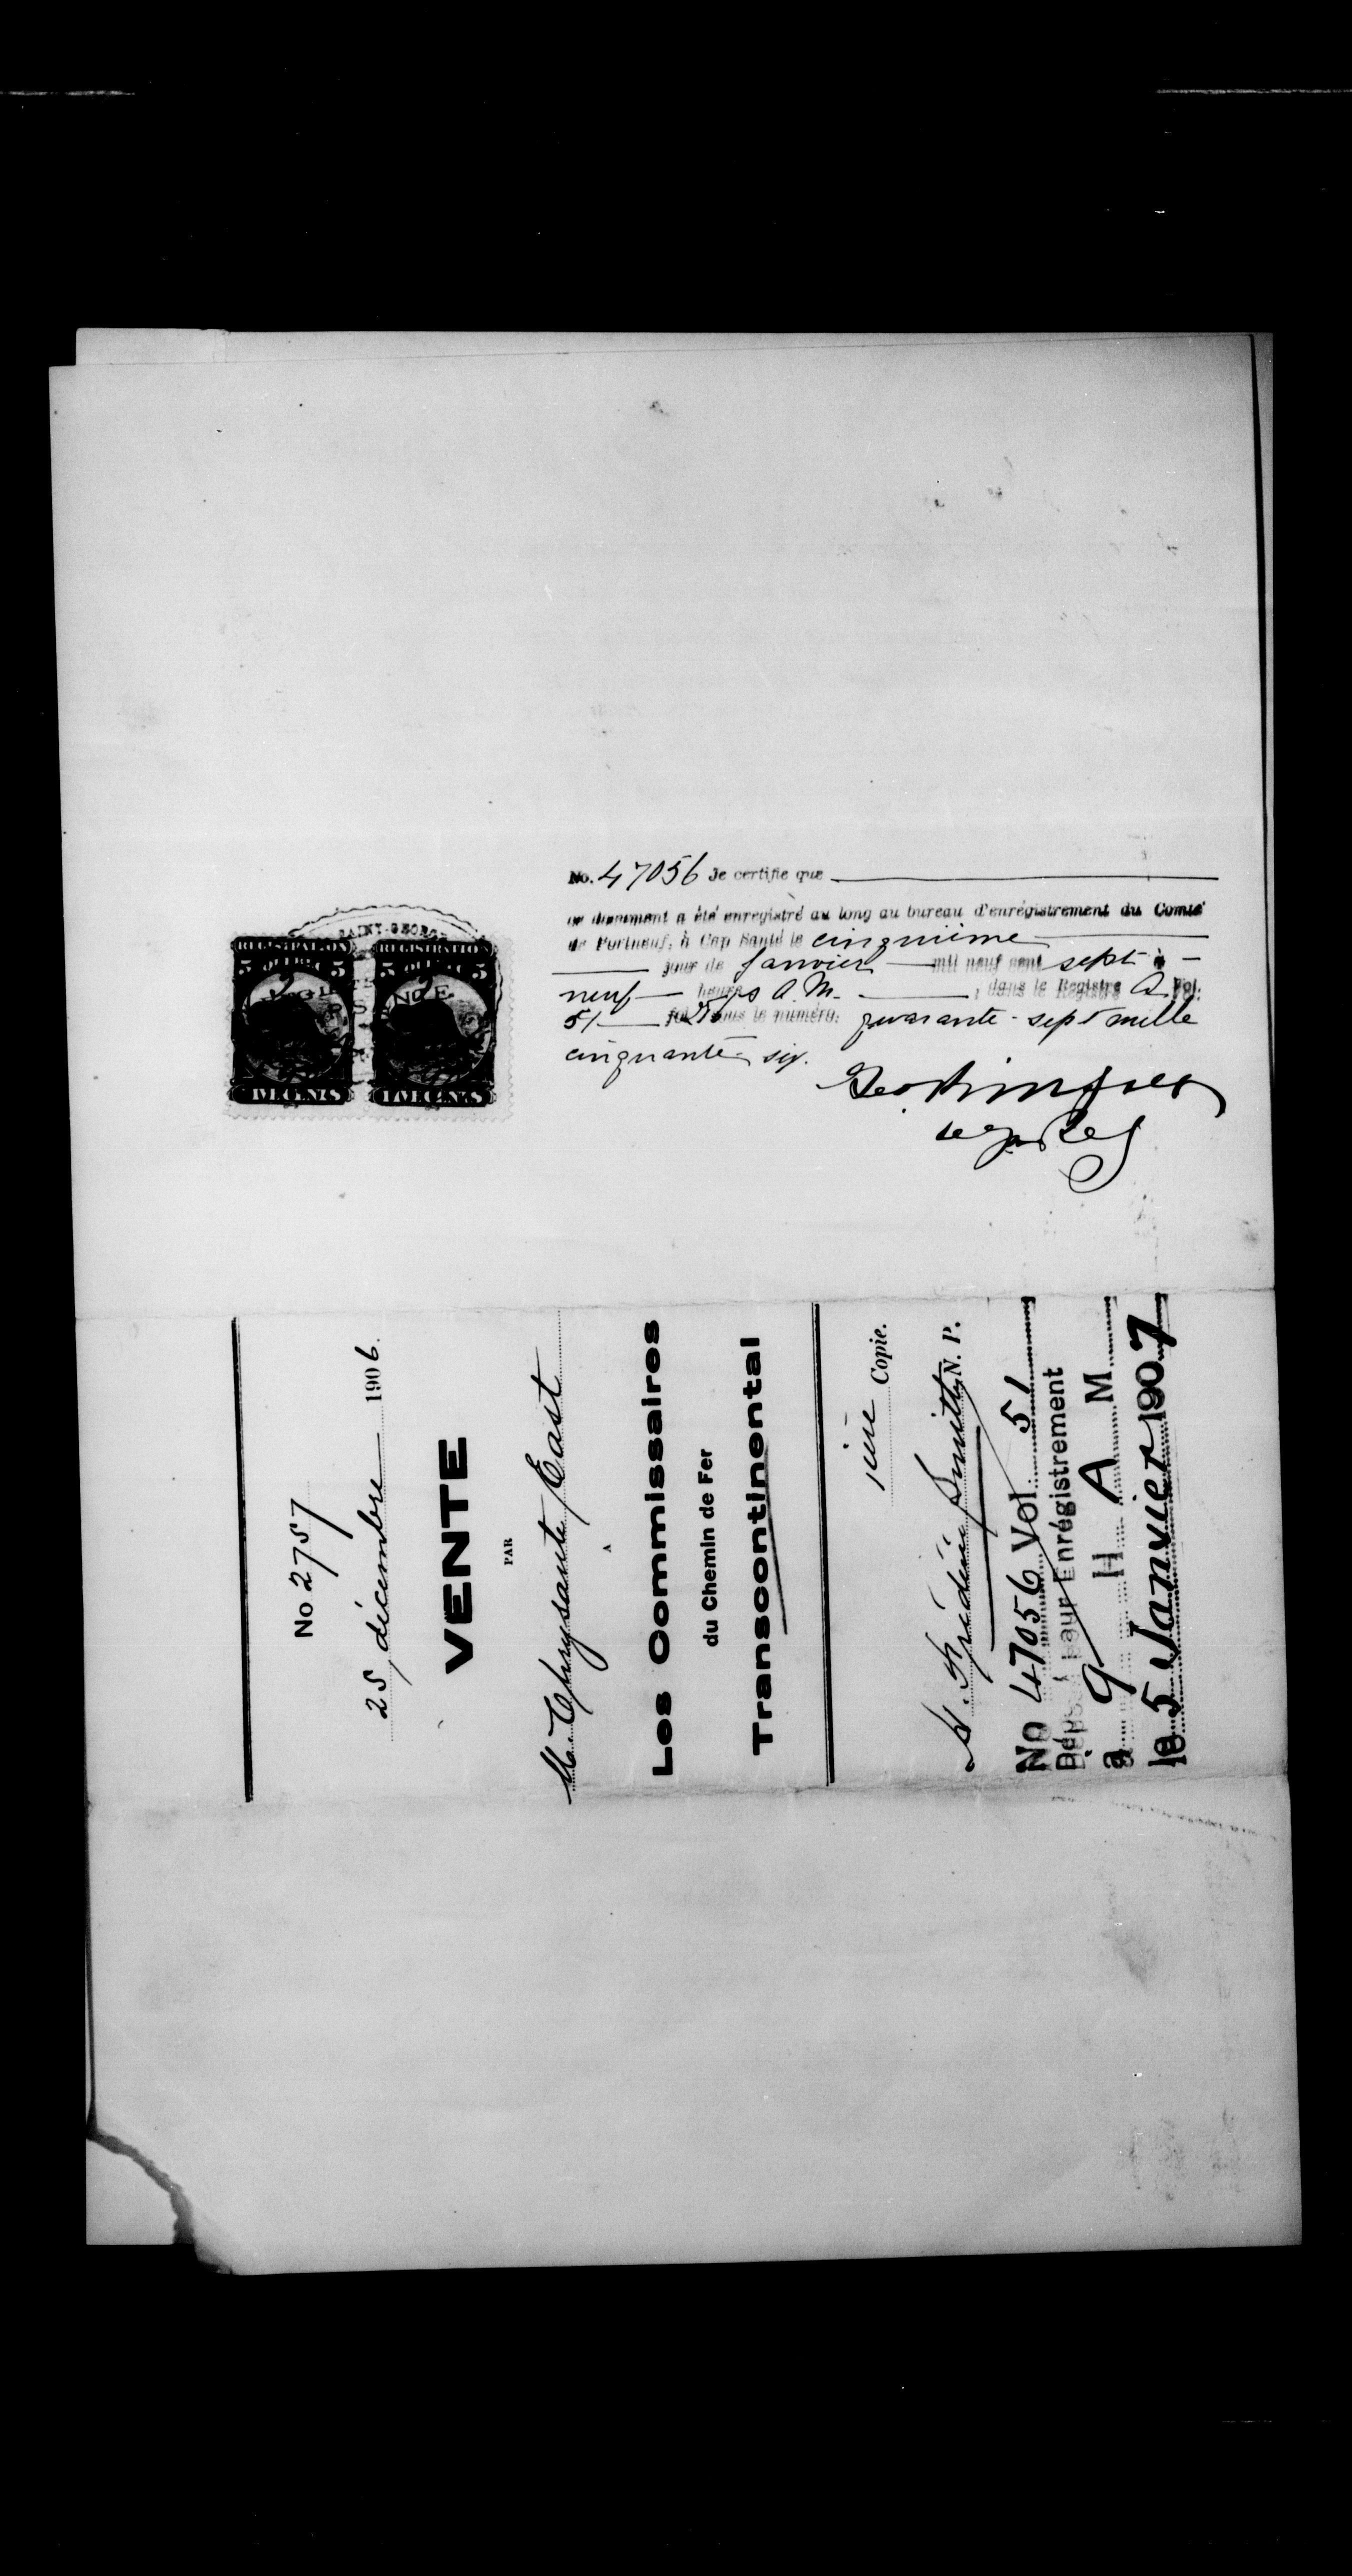 No. 47056 Je certifie que
ce document a été enregistré au long au bureau d'enrégistrement du Comté
de Portneuf, à Cap Santé le cinquième
jour de Janvier mil neuf cent sept à
neuf heures A. M. , dans le Registre Vol.
51 sous le numéro: quarante-sept mille
cinquante-six.
SAINT-GEORG
REGISTRATION
5 QUEBEC 5
REGISTRATION
5 QUEBEC 5
No 2757
25 décembre 1906.
VENTE
PAR
M. Chrysante East
A
Les Commissaires
du Chemin de Fer
Transcontinental
1ère Copie.
Frédéric Smith N. P.
No 47056 Vol 51
Déposé pour Enrégistrement
a 9 H A M
le 5 Janvier 1907